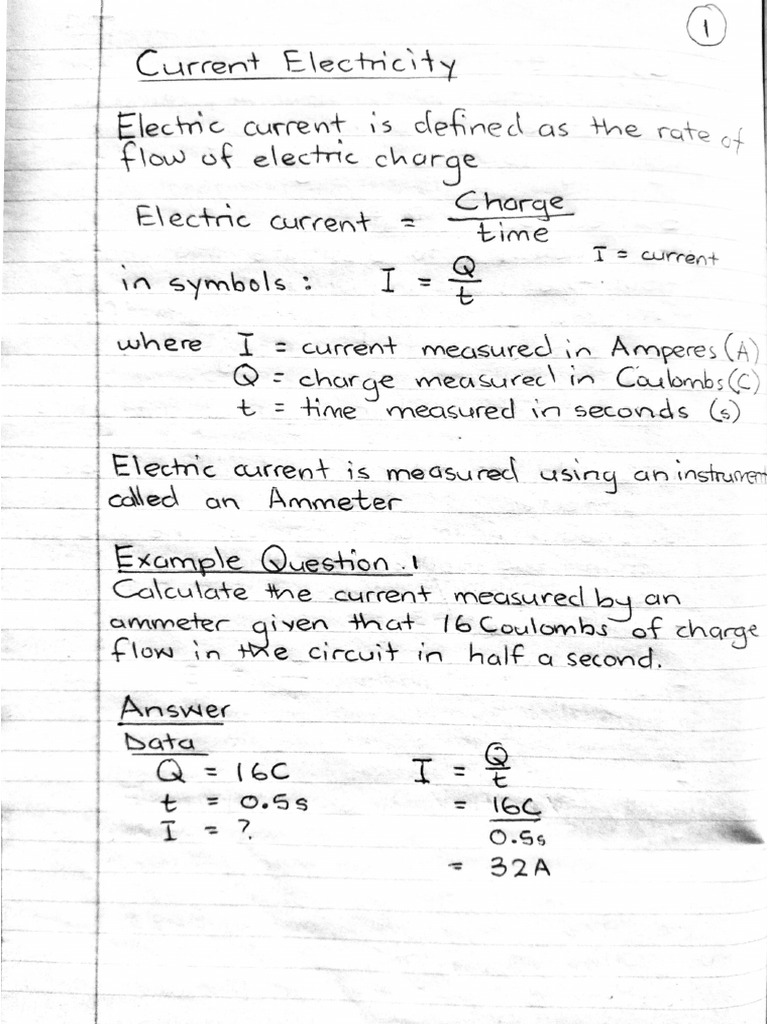 1
Current Electricity
Electric current is defined as the rate of
flow of electric charge
Electric current = Charge
time
I = current
in symbols : I = Q
t
where I = current measured in Amperes (A)
Q = charge measured in Coulombs (C)
t = time measured in seconds (s)
Electric current is measured using an instrument
called an Ammeter
Example Question .1
Calculate the current measured by an
ammeter given that 16 Coulombs of charge
flow in the circuit in half a second.
Answer
Data
Q = 16C
t = 0.5s
I = ?
I = Q
t
= 16C
0.5s
= 32A